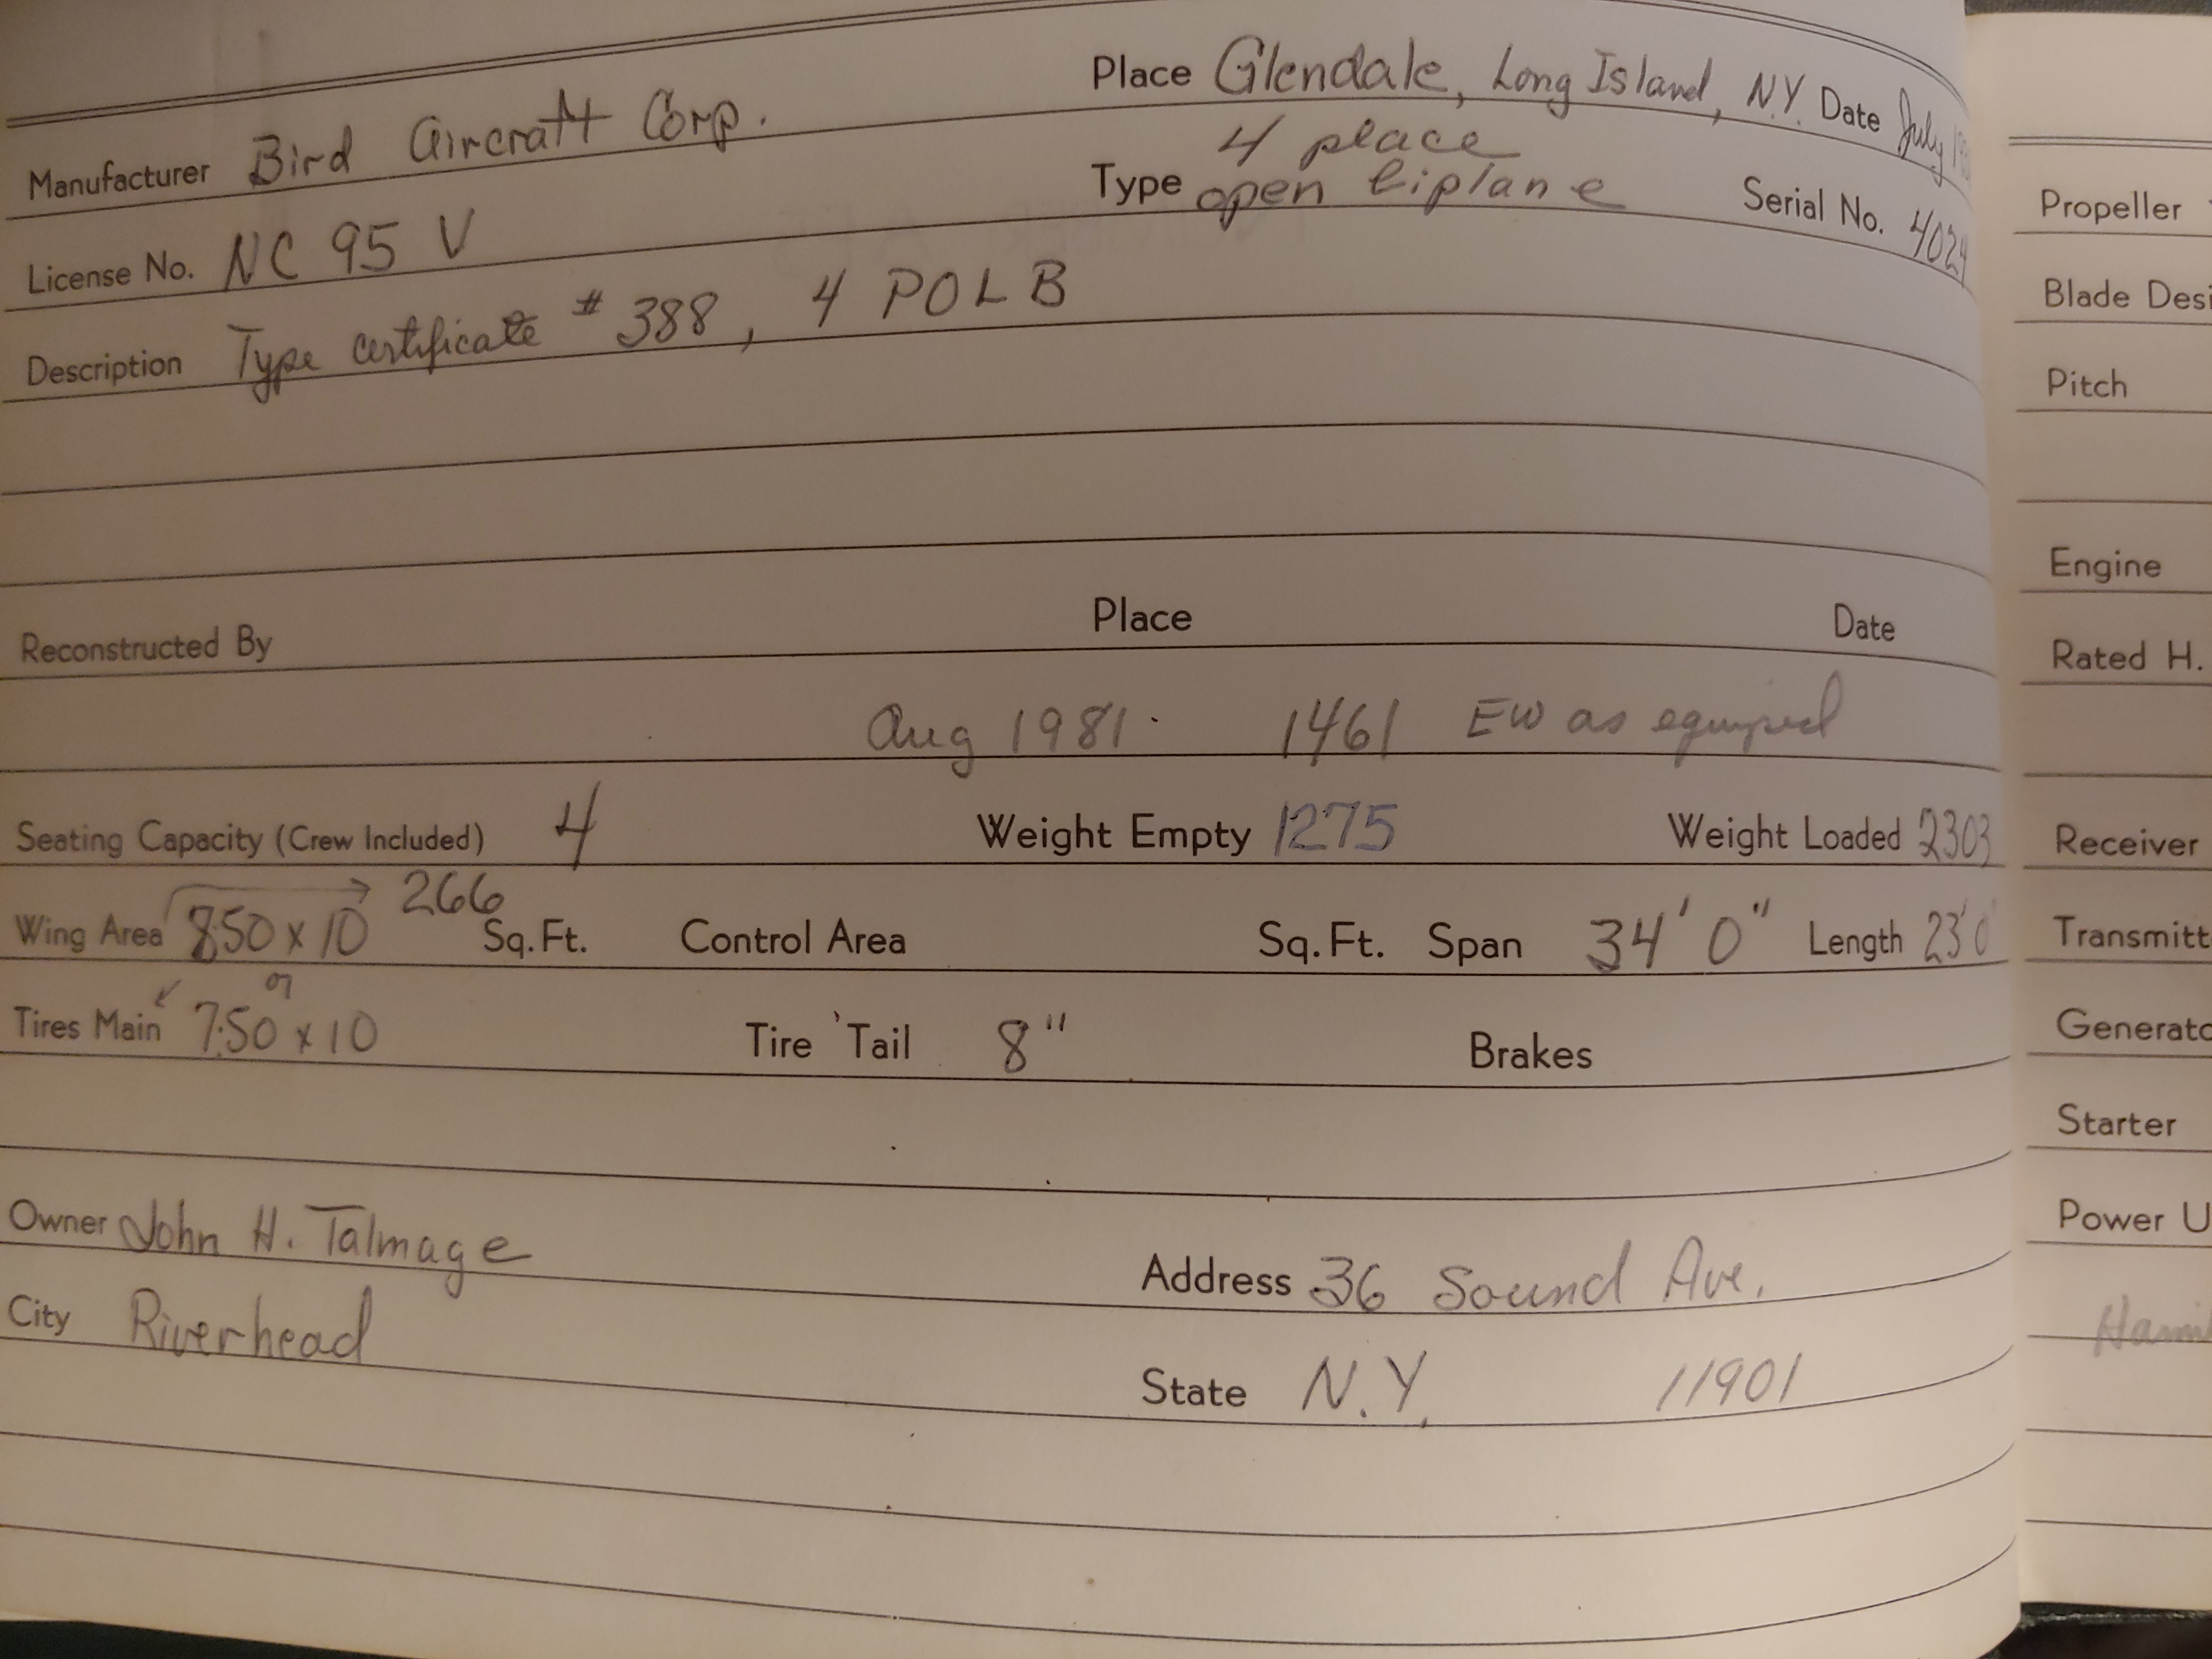 Place Glendale, Long Island, N.Y. Date July
Manufacturer Bird Aircraft Corp.
Type 4 place open biplane
Serial No. 4024
License No. NC 95 V
Description Type certificate # 388, 4 POLB
Reconstructed By Place Date
Aug 1981. 1461 EW as equiped
Seating Capacity (Crew Included) 4 Weight Empty 1275 Weight Loaded 2303
Wing Area 266 Sq. Ft. Control Area Sq. Ft. Span 34' 0" Length 23' 0"
850 x 10
or
Tires Main 7.50 x 10 Tire Tail 8" Brakes
Owner John H. Talmage Address 36 Sound Ave.
City Riverhead State N.Y. 11901
Propeller
Blade
Pitch
Engine
Rated H.
Receiver
Starter
Power